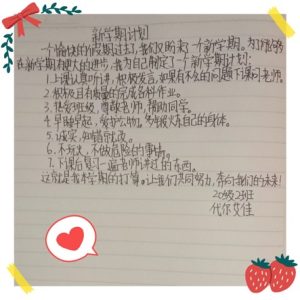 新学期计划
一个愉快的假期过去了,我们又迎来了一个新学期。为了能够
在新学期有更大的进步,我为自己制定了一个新学期计划:
1.上课认真听讲,积极发言,如果有不会的问题下课问老师。
2.按时且有质量的完成各科作业。
3.热爱班级,尊敬老师,帮助同学。
4.早睡早起,爱护公物,多锻炼自己的身体。
5.诚实,知错就改。
6.不玩火,不做危险的事情。
7.下课后复习一遍老师讲过的东西。
这就是我本学期的打算。让我们共同努力,奔向我们的未来!
20级2班
代尔艾佳